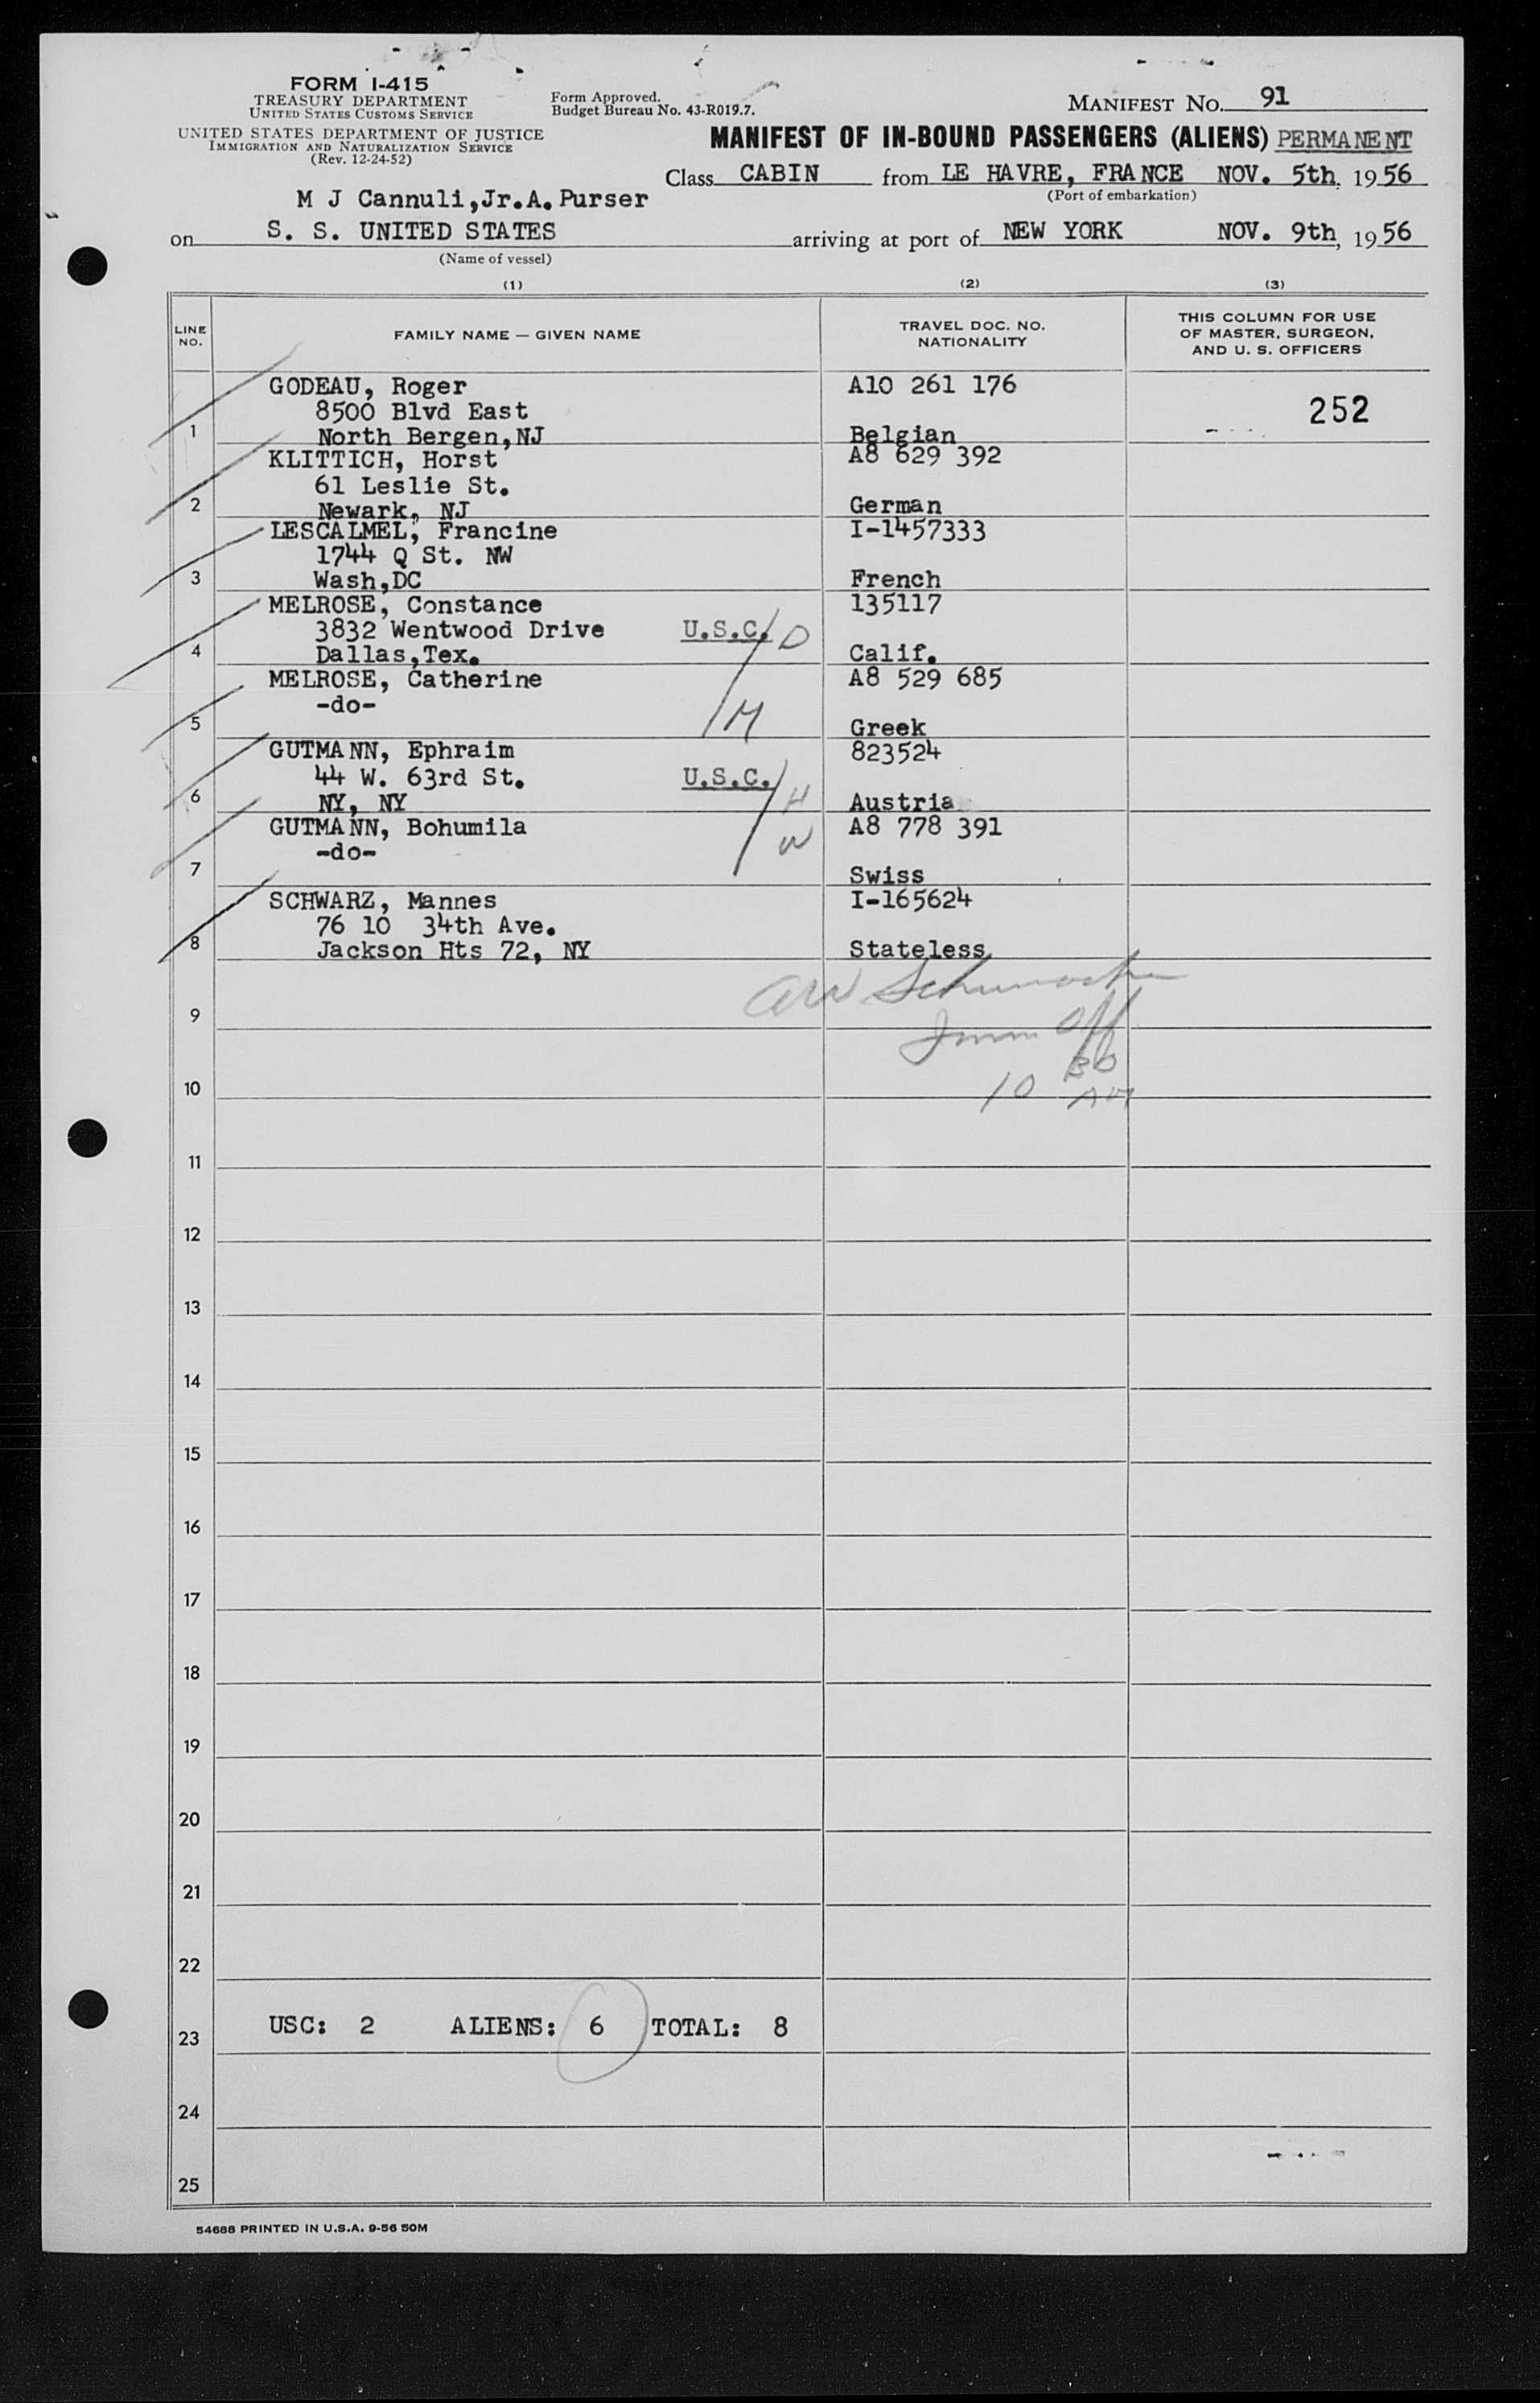 FORM I-415
TREASURY DEPARTMENT
UNITED STATES CUSTOMS SERVICE
UNITED STATES DEPARTMENT OF JUSTICE
IMMIGRATION AND NATURALIZATION SERVICE
(Rev. 12-24-52)
Form Approved.
Budget Bureau No. 43-R019.7.
MANIFEST NO. 91
MANIFEST OF IN-BOUND PASSENGERS (ALIENS) PERMANENT
Class CABIN from LE HAVRE, FRANCE NOV. 5th, 1956
(Port of embarkation)
M J Cannuli,Jr.A.Purser
on S. S. UNITED STATES arriving at port of NEW YORK NOV. 9th, 1956
(Name of vessel)
(1) (2) (3)
LINE NO.
FAMILY NAME — GIVEN NAME
TRAVEL DOC. NO.
NATIONALITY
THIS COLUMN FOR USE
OF MASTER, SURGEON,
AND U. S. OFFICERS
GODEAU, Roger A10 261 176
8500 Blvd East 252
1 North Bergen,NJ Belgian
KLITTICH, Horst A8 629 392
61 Leslie St.
2 Newark, NJ German
LESCALMEL, Francine I-1457333
1744 Q St. NW
3 Wash,DC French
MELROSE, Constance 135117
3832 Wentwood Drive U.S.C. D
4 Dallas,Tex. Calif.
MELROSE, Catherine A8 529 685
-do- M
5 Greek
GUTMANN, Ephraim 823524
44 W. 63rd St. U.S.C.
6 NY, NY H Austria
GUTMANN, Bohumila A8 778 391
-do- W
7 Swiss
SCHWARZ, Mannes I-165624
76 10 34th Ave.
8 Jackson Hts 72, NY Stateless
9
Imm Off
10 10 30 AM
11
12
13
14
15
16
17
18
19
20
21
22
23 USC: 2 ALIENS: 6 TOTAL: 8
24
25
54688 PRINTED IN U.S.A. 9-56 50M